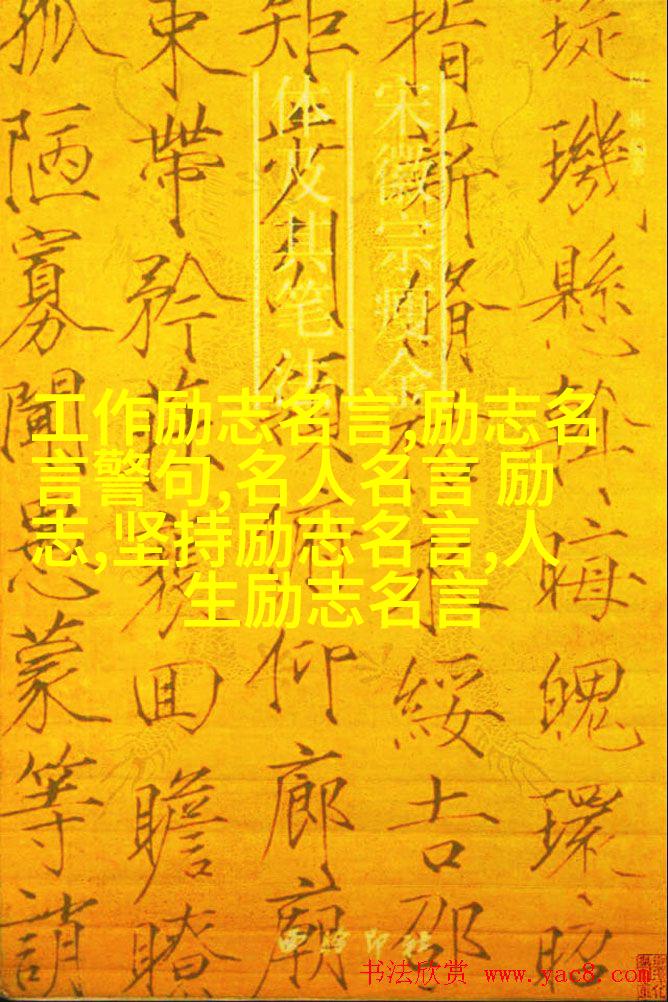 璇璣懸斡晦魄環照
指薪脩祜永綏吉邵
矩步引領俯仰廊廟
束帶矜回瞻眺
孤陋寡聞愚蒙等誚
宋徽宗瘦金
体及其笔法
工作励志名言,励志名
言警句,名人名言 励
志,坚持励志名言,人
生励志名言
西泠印社
书法欣赏 www.yac8.com